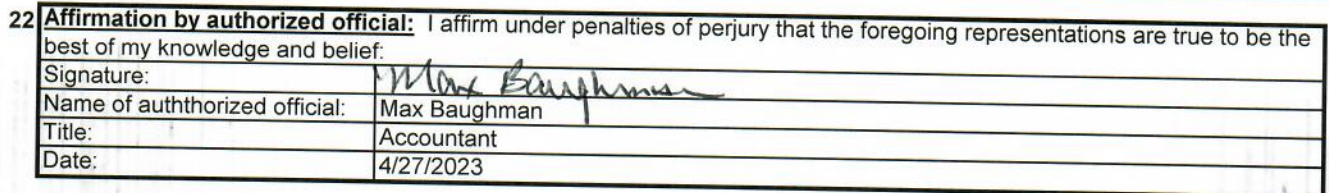 22 Affirmation by authorized official: I affirm under penalties of perjury that the foregoing representations are true to be the
best of my knowledge and belief:
Signature: Max Baughman
Name of auththorized official: Max Baughman
Title: Accountant
Date: 4/27/2023